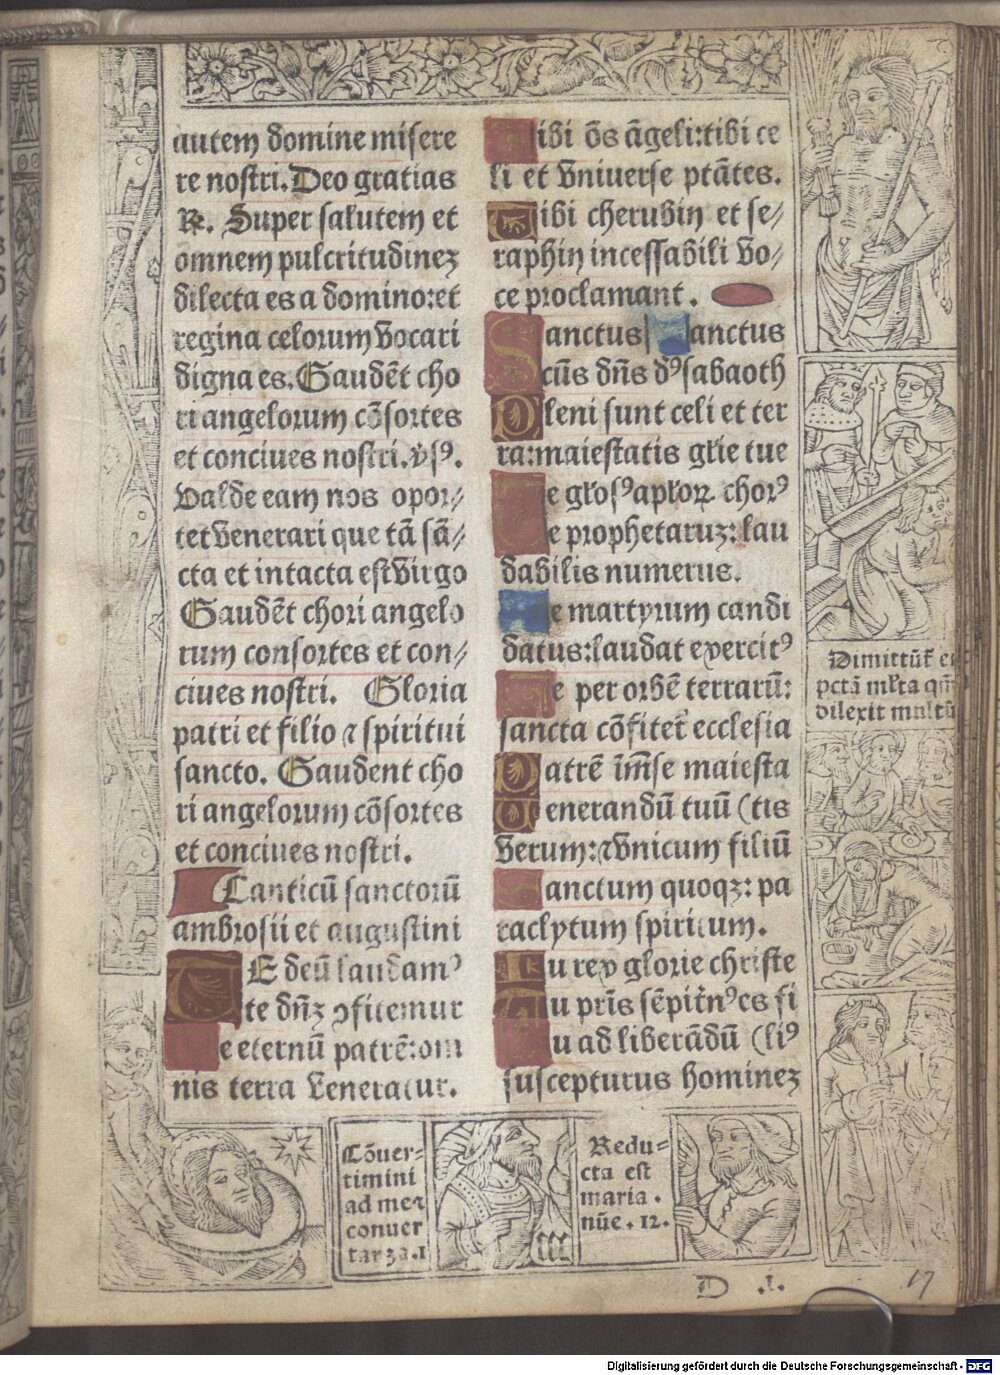 autem domine misere
re nostri. Deo gratias
R. Super salutem et
omnem pulcritudinez
dilecta es a domino: et
regina celorum vocari
digna es. Gaudēt cho
ri angelorum cōsortes
et conciues nostri. vsꝰ.
Valde eam nos opor⸗
tet venerari que tā sā⸗
cta et intacta est virgo
Gaudēt chori angelo
rum consortes et con⸗
ciues nostri. Gloria
patri et filio ⁊ spiritui
sancto. Gaudent cho
ri angelorum cōsortes
et conciues nostri.
Canticū sanctorū
ambrosii et augustini
TE deū laudamꝰ
te dn̄z ↄfitemur
Te eternū patrē: om
nis terra veneratur.
Tibi ōs āgeli: tibi ce
li et vniuerse ptātes.
Tibi cherubin et se⸗
raphin incessabili vo⸗
ce proclamant.
Sanctus Sanctus
scūs dn̄s dꝰ sabaoth
Pleni sunt celi et ter
ra: maiestatis gl̄ie tue
Te glosꝰ apl̄oꝝ chorꝰ
Te prophetaruz: lau
dabilis numerus.
Te martyrum candi
datus: laudat exercitꝰ
Te per orbē terrarū:
sancta cōfitet̄ ecclesia
Patrē im̄se maiesta
Venerandū tuū (tis
verum: ⁊ vnicum filiū
Sanctum quoqꝫ: pa
raclytum spiritum.
Tu rex glorie christe
Tu pr̄is sēpit̄nꝰ es fi
Tu ad liberādū (liꝰ
suscepturus hominez
Dimittūt̄ ei
pctā ml̄ta qm̄
dilexit multū
Cōuer⸗
timini
ad me ⁊
conuer
tar za. 1
Redu⸗
cta est
maria.
nūe. 12.
D .i.
17
Digitalisierung gefördert durch die Deutsche Forschungsgemeinschaft - DFG